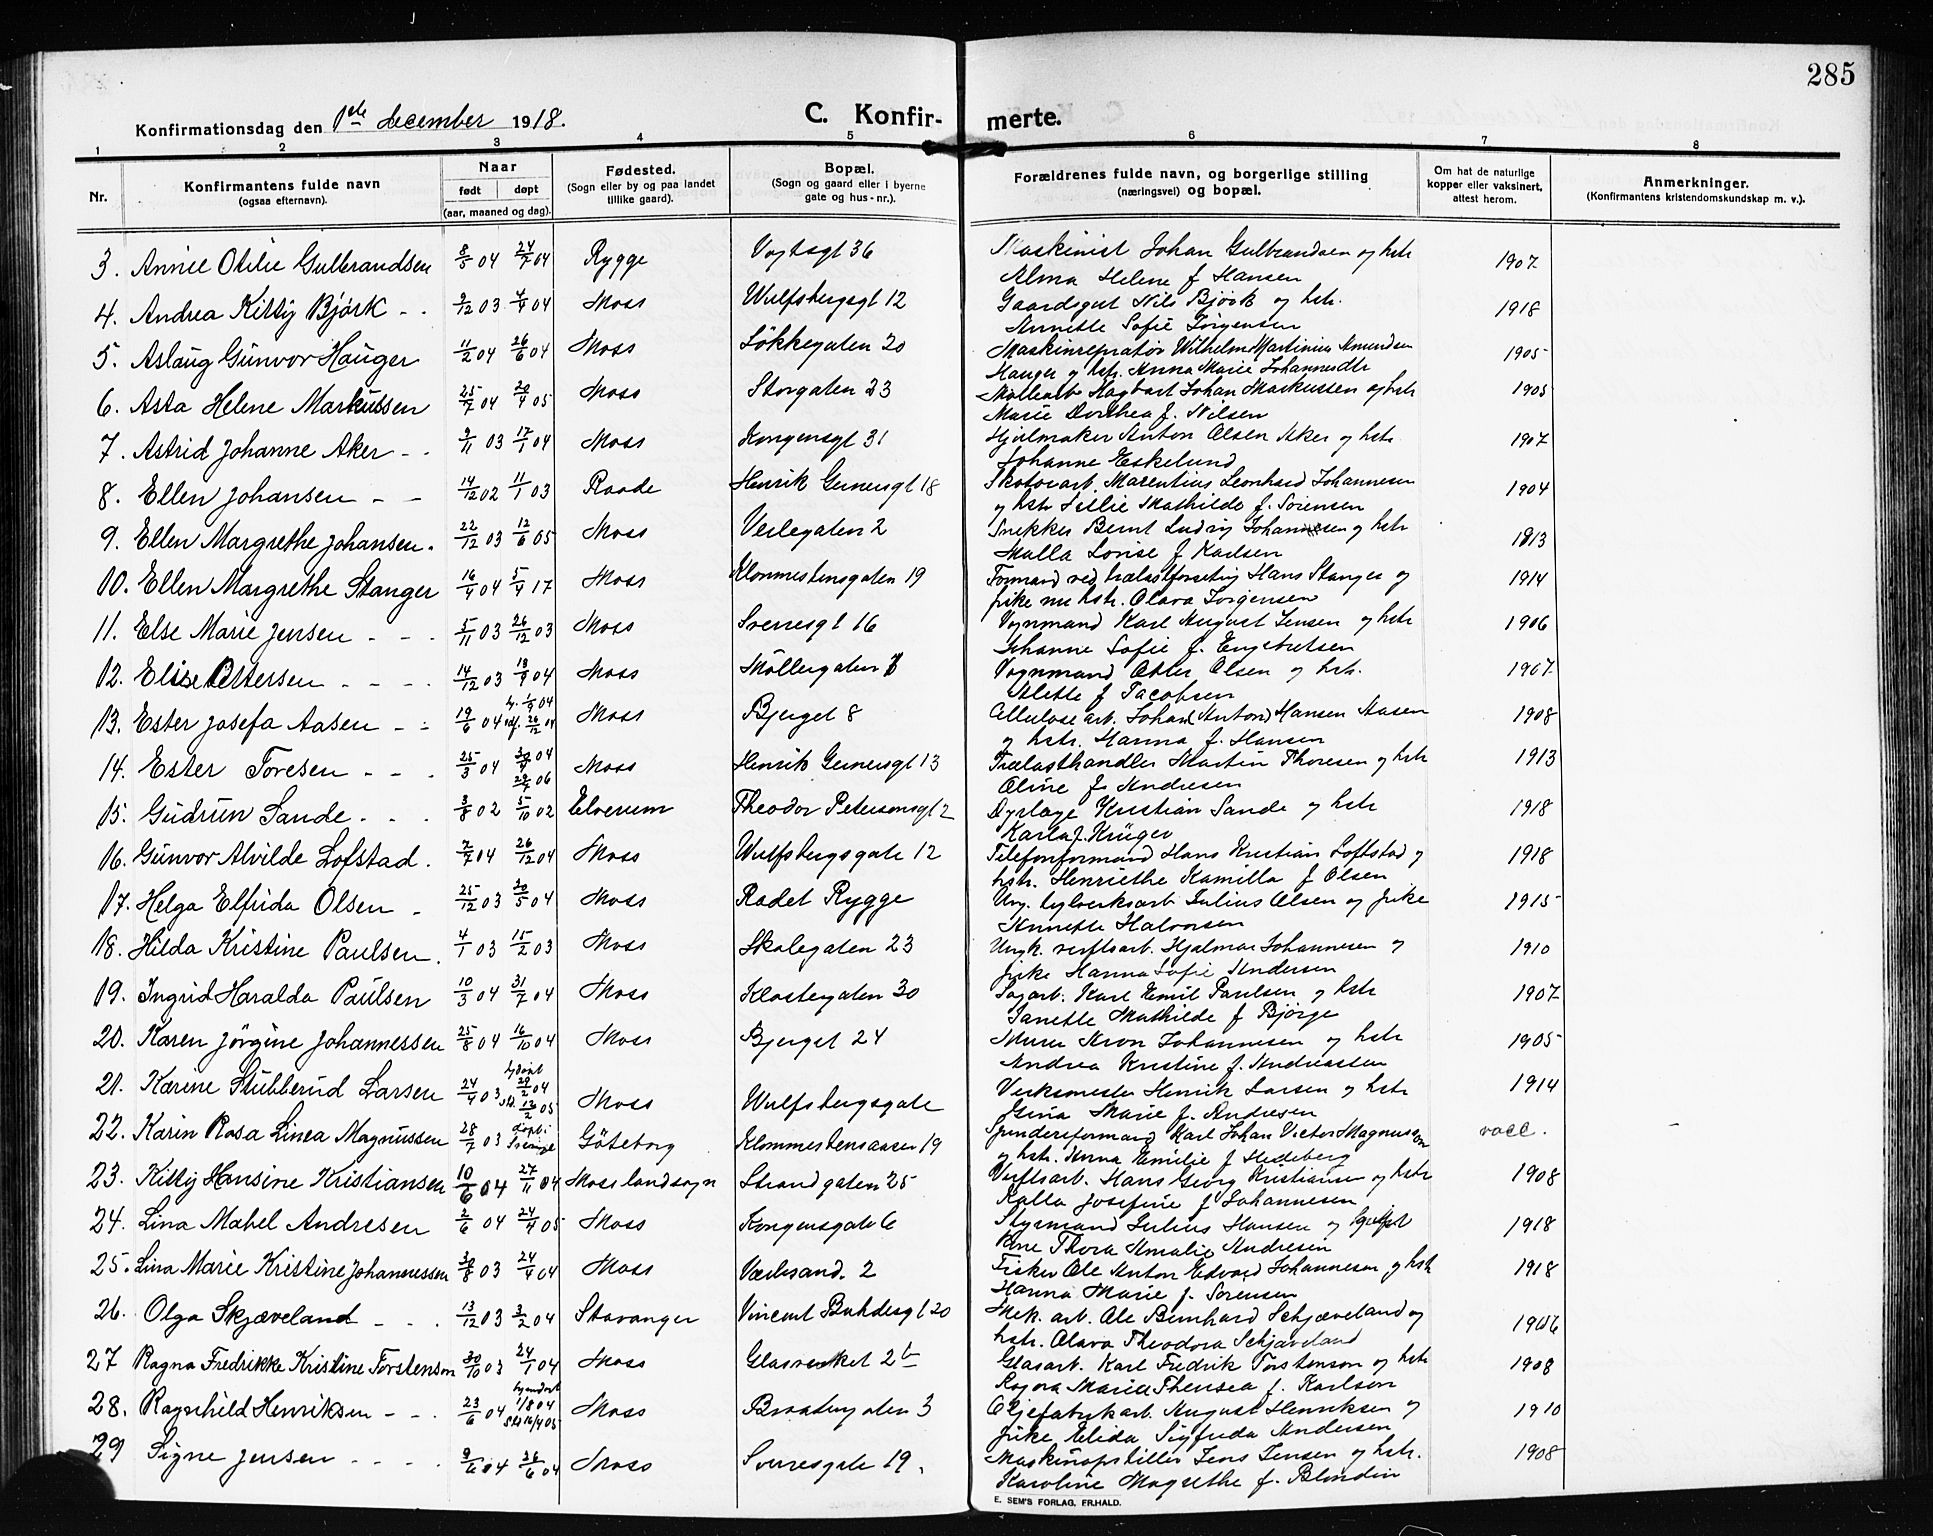 285
Konfirmationsdag den 1ste december 1918.
C. Konfirmerte.
1 2 3 4 5 6 7 8
Nr.
Konfirmantens fulde navn
(ogsaa efternavn).
Naar
født døpt
(aar, maaned og dag).
Fødested.
(Sogn eller by og paa landet
tillike gaard).
Bopæl.
(Sogn og gaard eller i byerne
gate og hus-nr.).
Forældrenes fulde navn, og borgerlige stilling
(næringsvei) og bopæl.
Om hat de naturlige
kopper eller vaksinert,
attest herom.
Anmerkninger.
(Konfirmantens kristendomskundskap m. v.).
3. Annie Otilie Gulbrandsen 8/5 04 24/7 04 Rygge Vogtsgt 36 Maskinist Johan Gulbrandsen og hstr 1907
Alma Helene f Hansen
4. Andrea Kitty Bjørk - - 9/12 03 4/4 04 Moss Wulfsbergsgt 12 Gaardsgut Nils Bjørk og hstr. 1918
Annette Sofie Jørgensen
5. Aslaug Gunvor Hauger 11/2 04 26/6 04 Moss Løkkegaten 20 Maskinrepratør Wilhelm Martinius Amundsen 1905
Hauger og hstr. Anna Marie Johannesdtr
6. Asta Helene Markussen 25/7 04 20/4 05 Moss Storgaten 23 Møllearb Hagbart Johan Markussen og hstr 1905
Marie Dorthea f. Nilsen
7. Astrid Johanne Aker - - 9/11 03 17/1 04 Moss Kongensgt 31 Hjulmaker Anton Olsen Aker og hstr 1907
Johanne Eskelund
8. Ellen Johansen - - 14/12 02 11/1 03 Raade Henrik Gernersgt 18 Skotøiarb. Marentius Leonhard Johannesen 1904
og hstr Lillie Mathilde f. Sørensen
9. Ellen Margrethe Johansen. 22/12 03 12/6 05 Moss Verlegaten 2 Snekker Bernt Ludvig Johannesen og hstr 1913
Malla Lovise f Karlsen
10. Ellen Margrethe Stanger 16/4 04 5/4 17 Moss Klommestensgaten 19 Formand ved trælastforretning Hans Stanger og 1914
pike nu hstr. Olava Jørgensen
11. Else Marie Jensen - - - 5/11 03 26/12 03 Moss Sverresgt 16 Vognmand Karl August Jensen og hstr 1906
Johanne Sofie f. Engebretsen
12. Elise Ottersen - - - 14/12 03 18/9 04 Moss Møllergaten 7 Vognmand Otter Olsen og hstr. 1907
Alette f Jacobsen
13. Ester Josefa Aasen - - 19/6 04 1/5 04 26/12 04 Moss Bjerget 8 Cellulosearb. Johan (Anton) Hansen Aasen 1908
og hstr. Hanna f. Hansen
14. Ester Toresen - - - 25/3 04 04 06 Moss Henrik Gernersgt 13 Trælasthandler Martin Thoresen og hstr 1913
Oline f. Andresen
15. Gudrun Sande - - - 3/8 02 5/10 02 Elverum Theodor Petersonsgt 2 Dyrlæge Kristian Sande og hstr 1918
Karla f. Krüger
16. Gunvor Alvilde Lofstad. 7/7 04 26/12 04 Moss Wulfsbergsgate 12 Telefonformand Hans Kristian Loftstad og 1918
hstr. Henriethe Kamilla f Olsen
17. Helga Elfrida Olsen - 25/12 03 30/5 04 Moss Rødet Rygge Ung. arb Julius Olsen og pike 1915
Annette Halvorsen
18. Hilda Kristine Paulsen. 4/1 03 15/2 03 Moss Skolegaten 23 Ungk. verftsarb. Hjalmar Johannesen og 1910
pike Hanna Sofie Andersen
19. Ingrid Haralda Paulsen 10/3 04 31/7 04 Moss Klostergaten 30 Sagarb. Karl Emil Paulsen og hstr 1907
Janette Mathilde f Bjørge
20. Karen Jørgine Johannessen 25/8 04 16/10 04 Moss Bjerget 24 Murer Aron Johannesen og hstr 1905
Andrea Kristine f. Andreassen
21. Karine Stubberud Larsen 24/4 03 hjdøpt 29/2 04 st. 12/2 05 Moss Wulfsbergsgate Verksmester Henrik Larsen og hstr 1914
Gina Marie f. Andresen
22. Karin Rosa Linea Magnussen 28/7 03 døpt i Sverige Göteborg Klommestensaasen 19 Spinderformand Karl Johan Victor Magnusson vacc.
og hstr. Anna Emilie f Hedeberg
23. Kitty Hansine Kristiansen 10/6 04 27/11 04 Moss landsogn Strandgaten 25 Verftsarb. Hans Georg Kristiansen og hstr 1908
Kalla Josefine f Johannesen
24. Lina Mabel Andresen 2/6 04 24/4 05 Moss Kongensgate 6 Styrmand Julius Hansen og 1918
Thora Amalie Andresen
25. Lina Marie Kristine Johannessen 30/8 03 24/4 04 Moss Værlesand. 2 Fisker Ole Anton Edvard Johannesen og hstr 1918
Hanna Marie f. Sørensen
26. Olga Skjæveland - - - 13/12 03 3/2 04 Stavanger Vincent Buddesgt 20 Mek. arb. Ole Bernhard Schjæveland og 1906
hstr. Olava Theodora Schjæveland
27 Ragna Fredrikke Kristine Torstenson 30/10 03 24/1 04 Moss Glasverket 2b Glasarb. Karl Fredrik Torstenson og hstr 1908
Maria Theresea f. Karlson
28. Ragnhild Henriksen - - - 23/6 04 1/8 04 st 16/4 05 Moss Bråtengaten 3 Oljefabrikarb. August Henriksen og 1910
pike Elida Sigfrida Andersen
29 Signe Jensen - - - - 9/6 04 26/6 04 Moss Sverresgate 19. Maskinopstiller Jens Jensen og hstr. 1908
Karoline Magrethe f. Blondin
E. SEM'S FORLAG, FR.HALD.